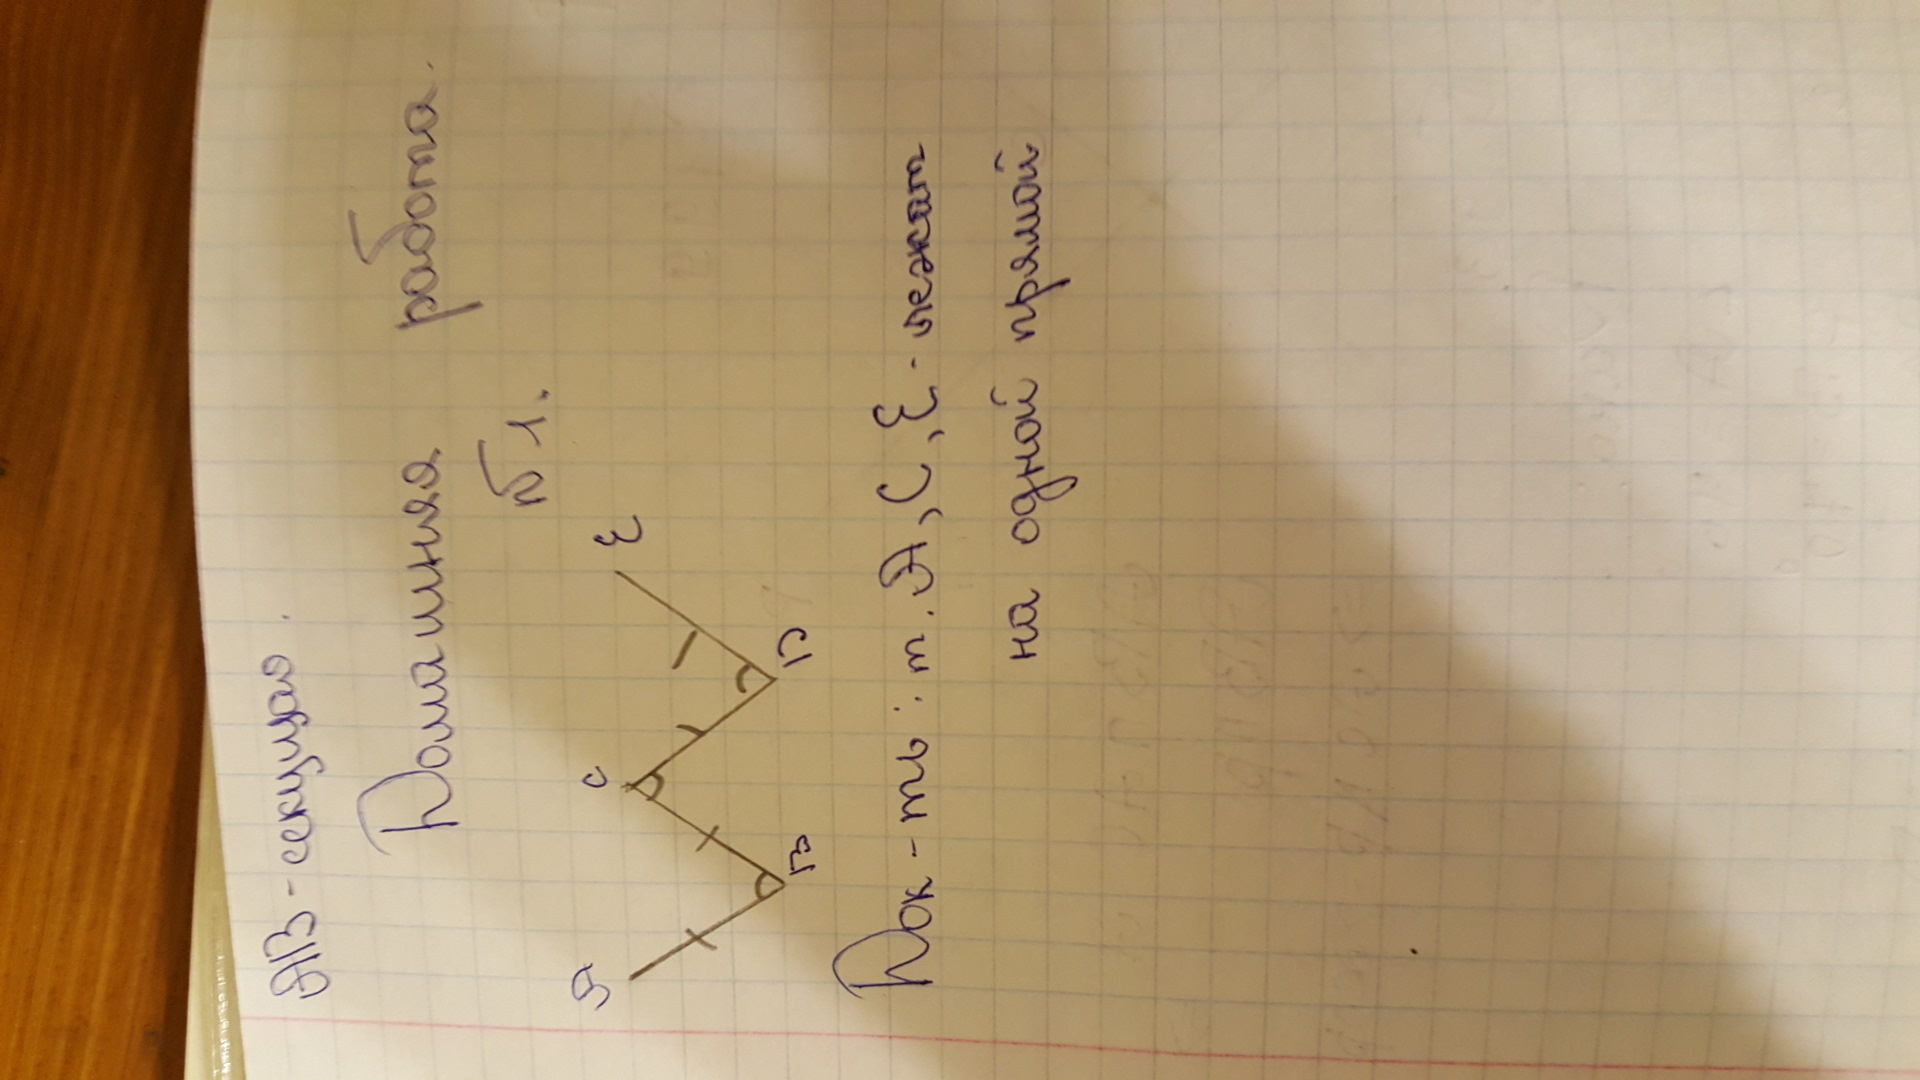 AB - секущая.
Домашняя работа.
№ 1.
A C E
B D
Док-ть: т. A, C, E - лежат
на одной прямой